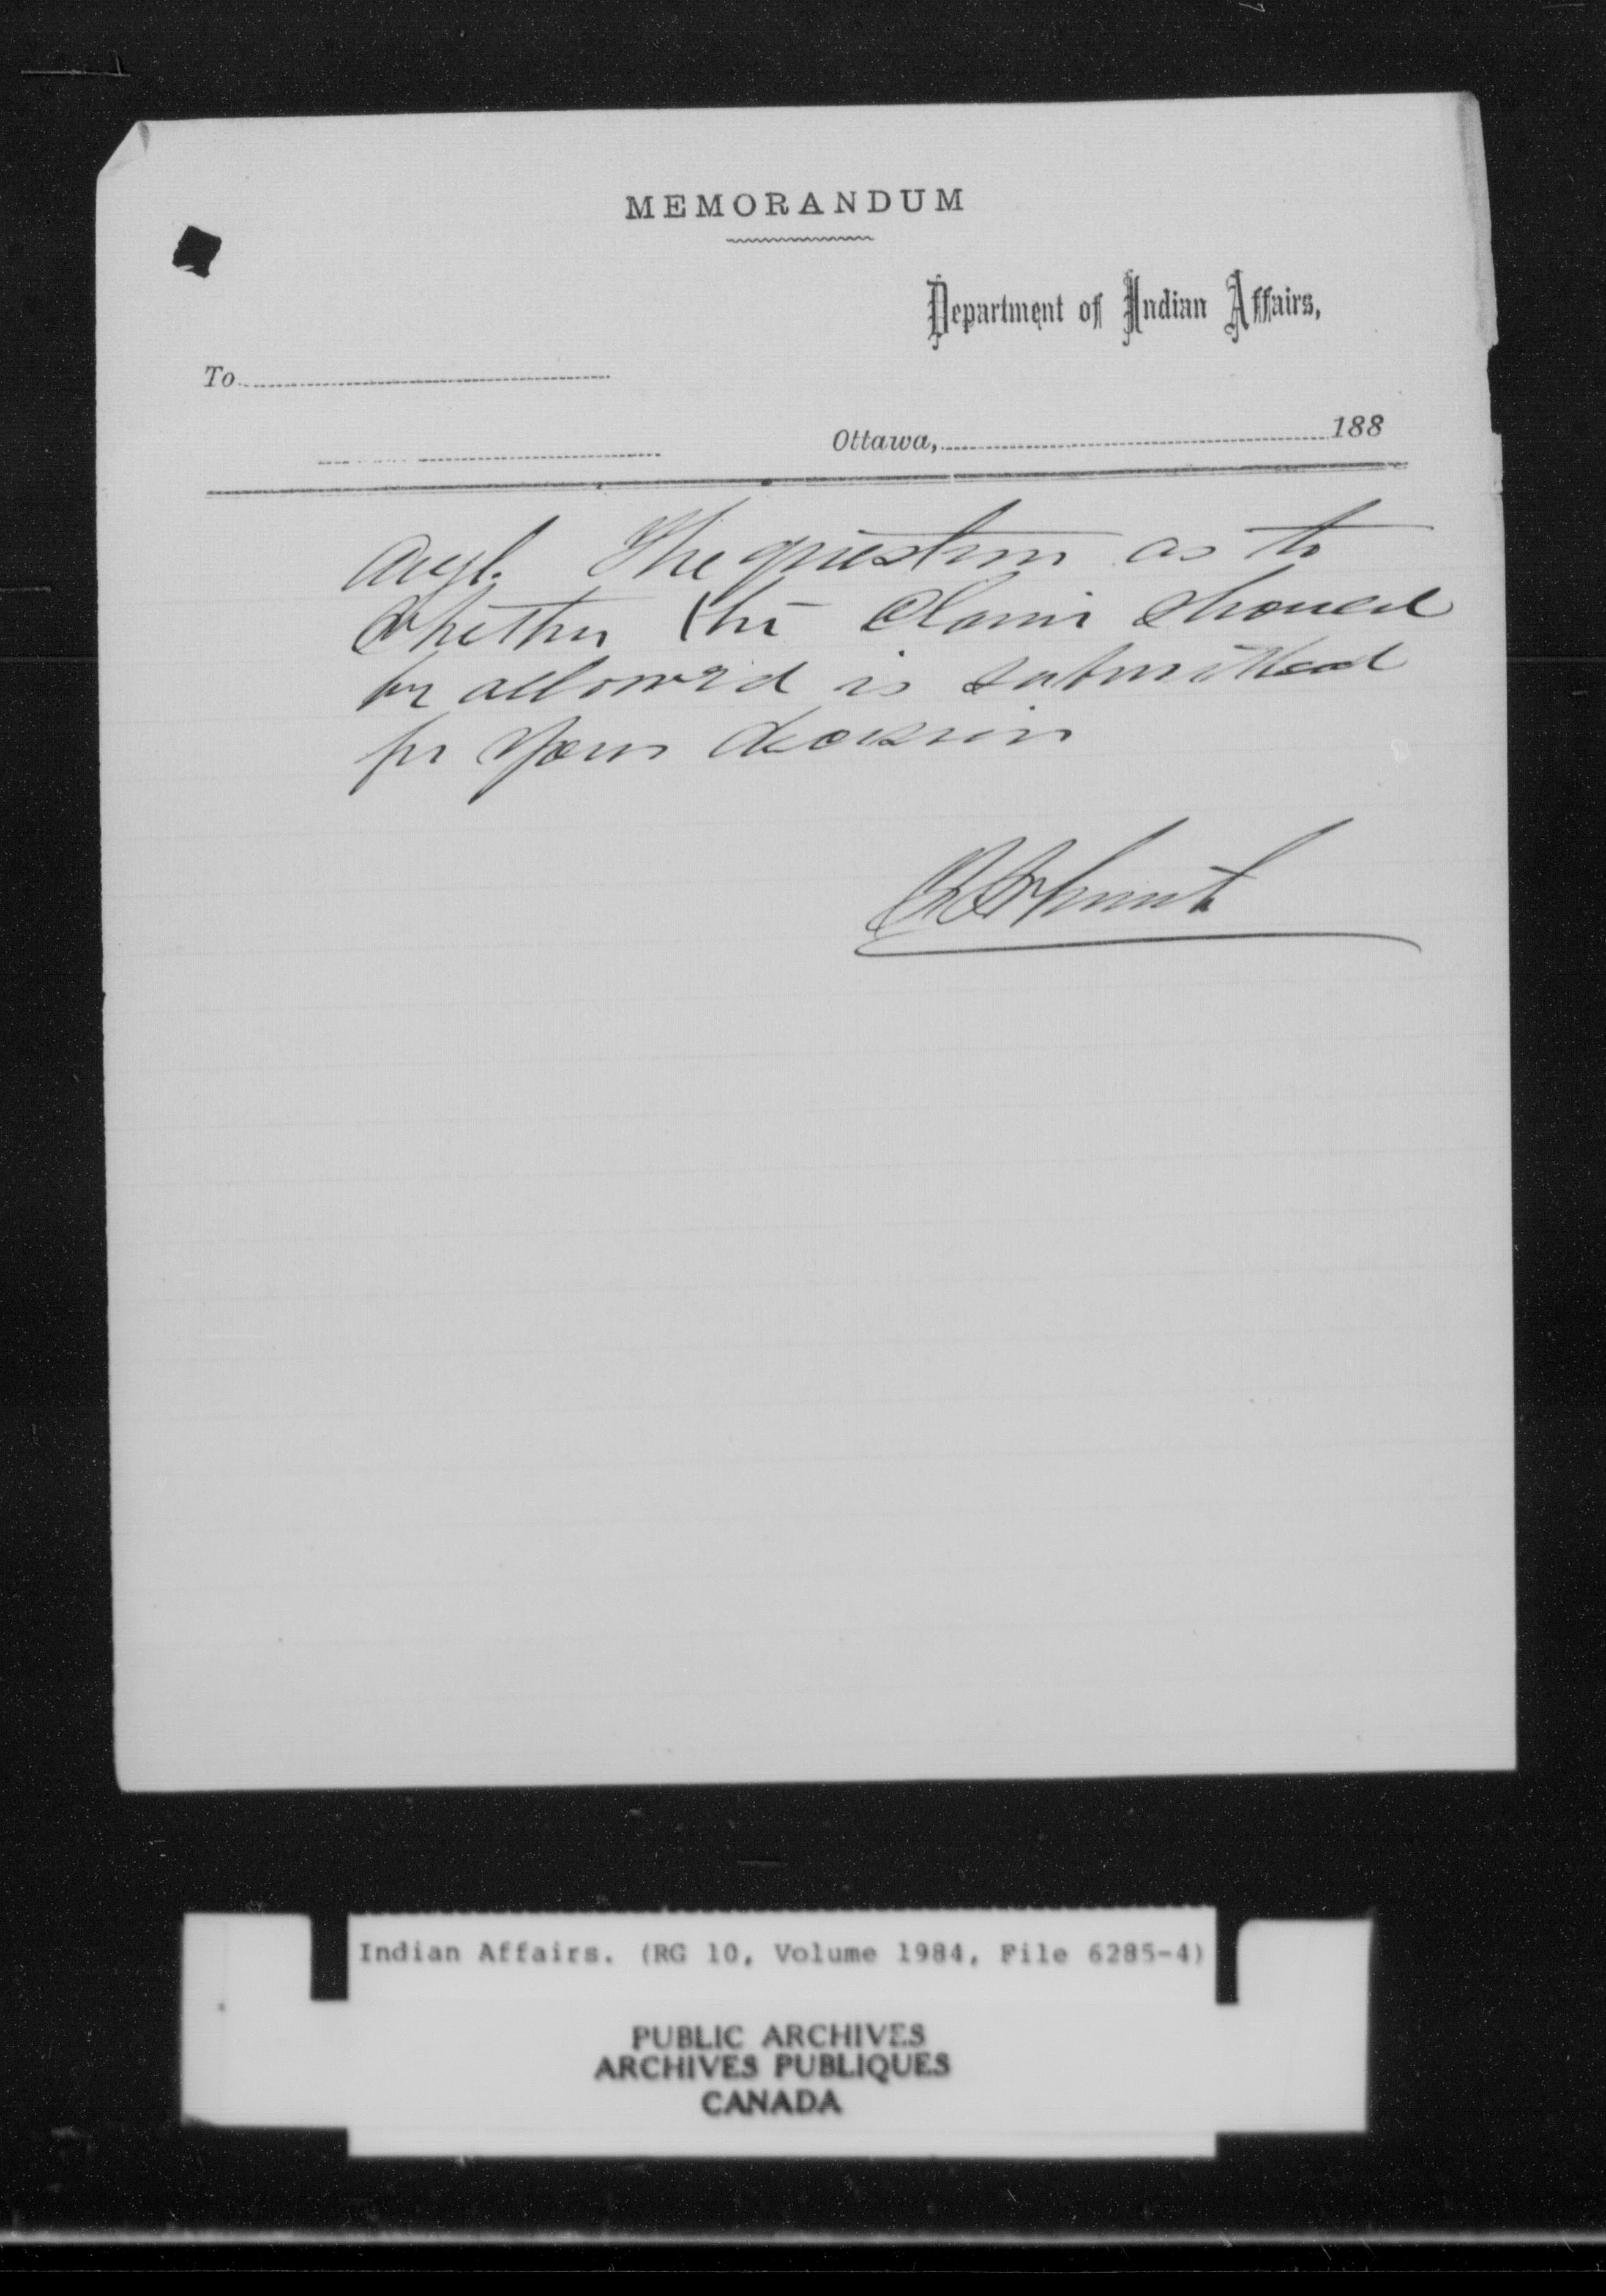 MEMORANDUM
Department of Indian Affairs,
To
Ottawa, 188
The question as to
whether the claim should
be allowed is submitted
for your decision
Indian Affairs. (RG 10, Volume 1984, File 6285-4)
PUBLIC ARCHIVES
ARCHIVES PUBLIQUES
CANADA